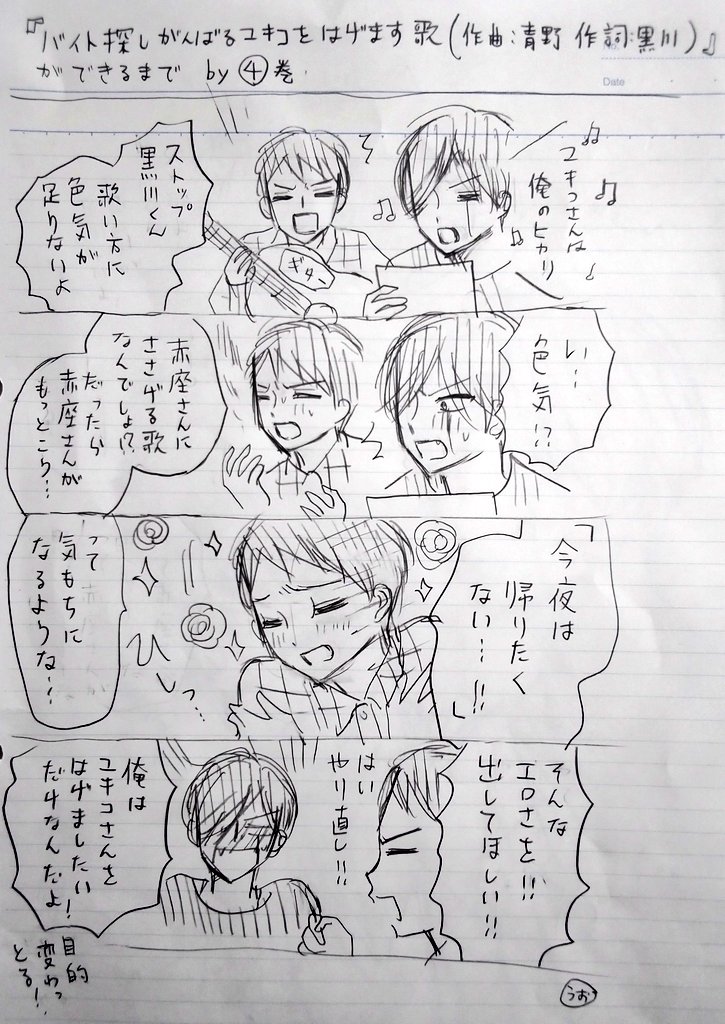 『バイト探しがんばるユキコをはげます歌(作曲:青野 作詞:黒川)』
ができるまで by④巻
Date
ユキコさんは
俺のヒカリ
ギター
ストップ
黒川くん
歌い方に
色気が
足りないよ
い…
色気!?
赤座さんに
ささげる歌
なんでしょ!?
だったら
赤座さんが
もっとこう…
「今夜は
帰りたく
ない…!!」
ひしっ…
って
気もちに
なるような…
そんな
エロさを!!
出してほしい!!
はい
やり直し!!
俺は
ユキコさんを
はげましたい
だけなんだよ!
目的
変わっ
とる!
うお